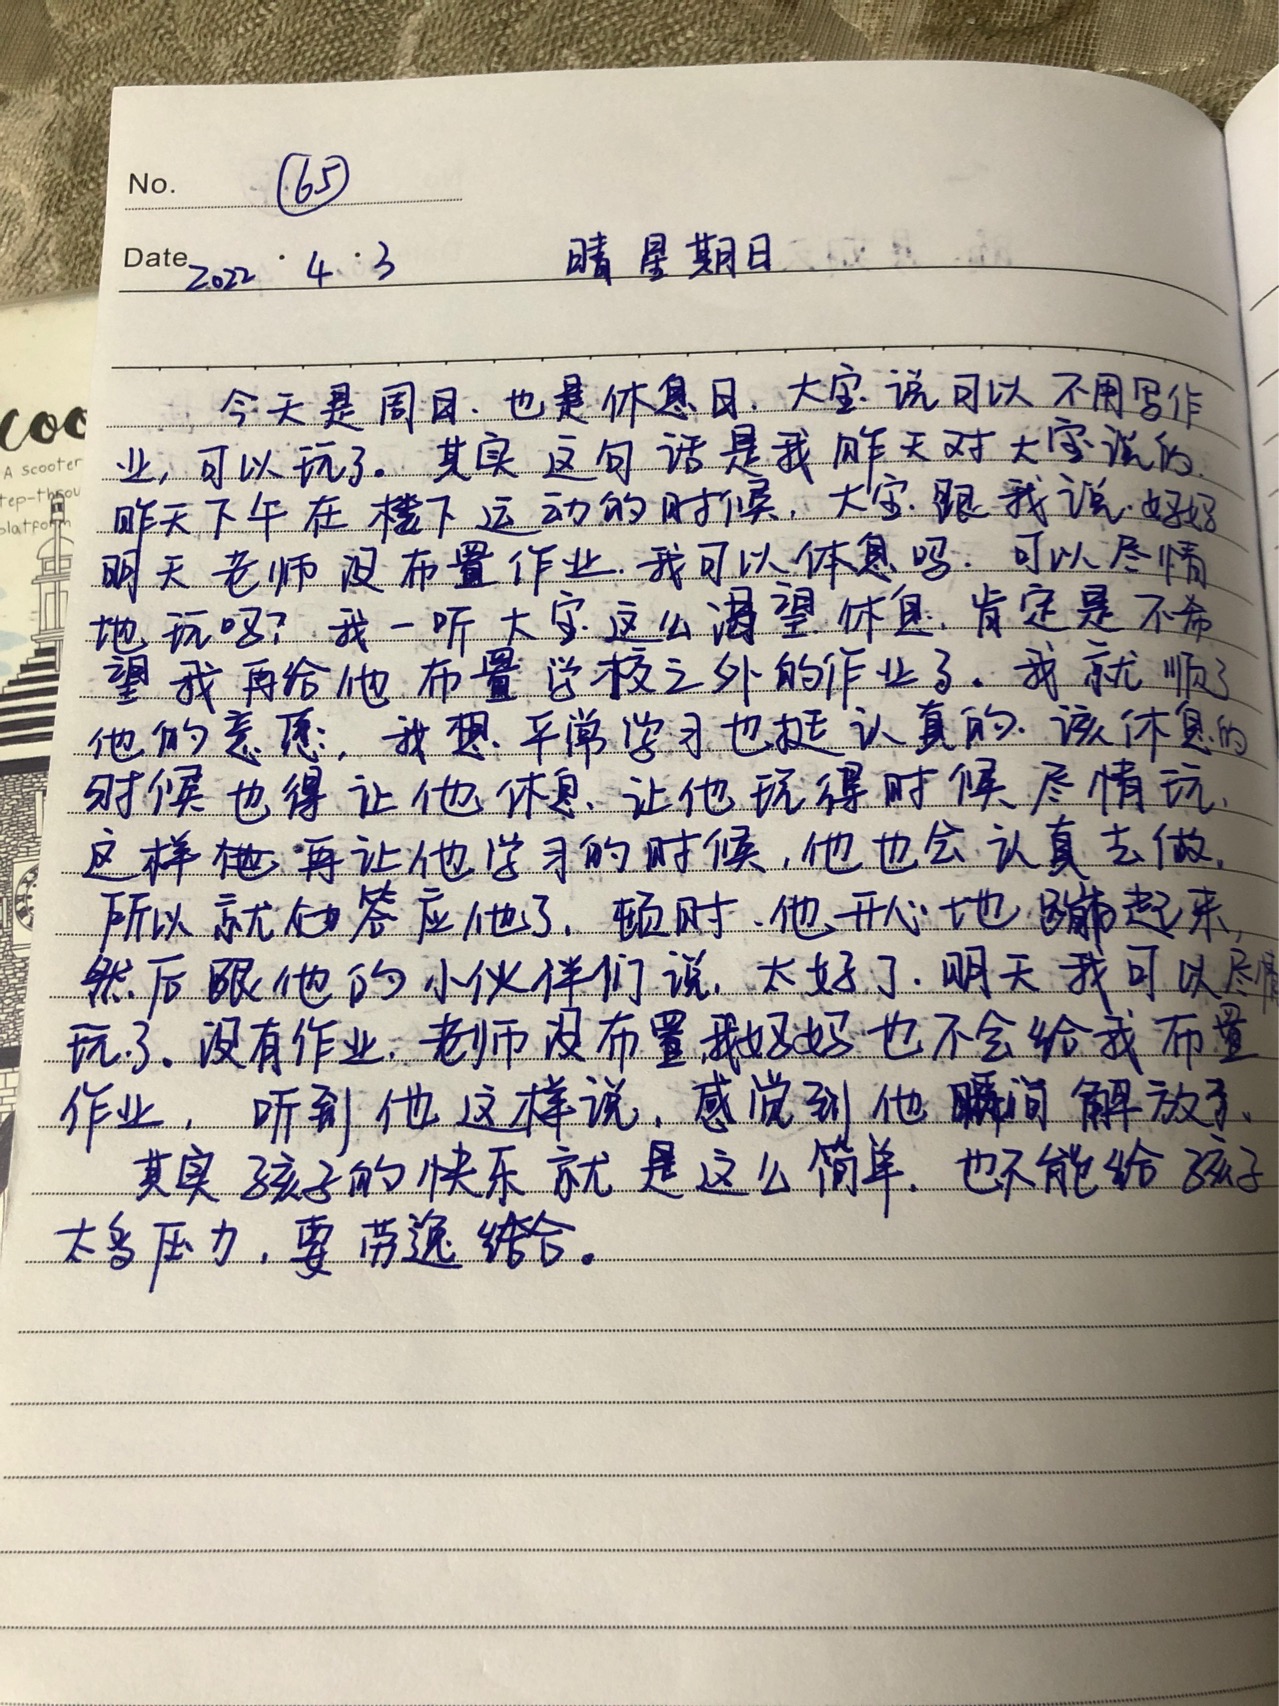 No. 65
Date 2022 · 4 · 3 晴 星期日
今天是周日.也是休息日.大宝说可以不用写作
业,可以玩了。其实这句话是我昨天对大宝说的.
昨天下午在楼下运动的时候,大宝跟我说.妈妈
明天老师没布置作业.我可以休息吗.可以尽情
地玩吗?我一听大宝这么渴望休息,肯定是不希
望我再给他布置学校之外的作业了。我就顺了
他的意愿,我想.平常学习也挺认真的.该休息的
时候也得让他休息、让他玩得时候尽情玩,
这样他再让他学习的时候,他也会认真去做,
所以就答应他了.顿时.他开心地蹦起来,
然后跟他的小伙伴们说,太好了.明天我可以尽情
玩了。没有作业.老师没布置我妈妈也不会给我布置
作业,听到他这样说,感觉到他瞬间解放了.
其实孩子的快乐就是这么简单.也不能给孩子
太多压力,要劳逸结合。
coo
A scooter
tep-throu
platform